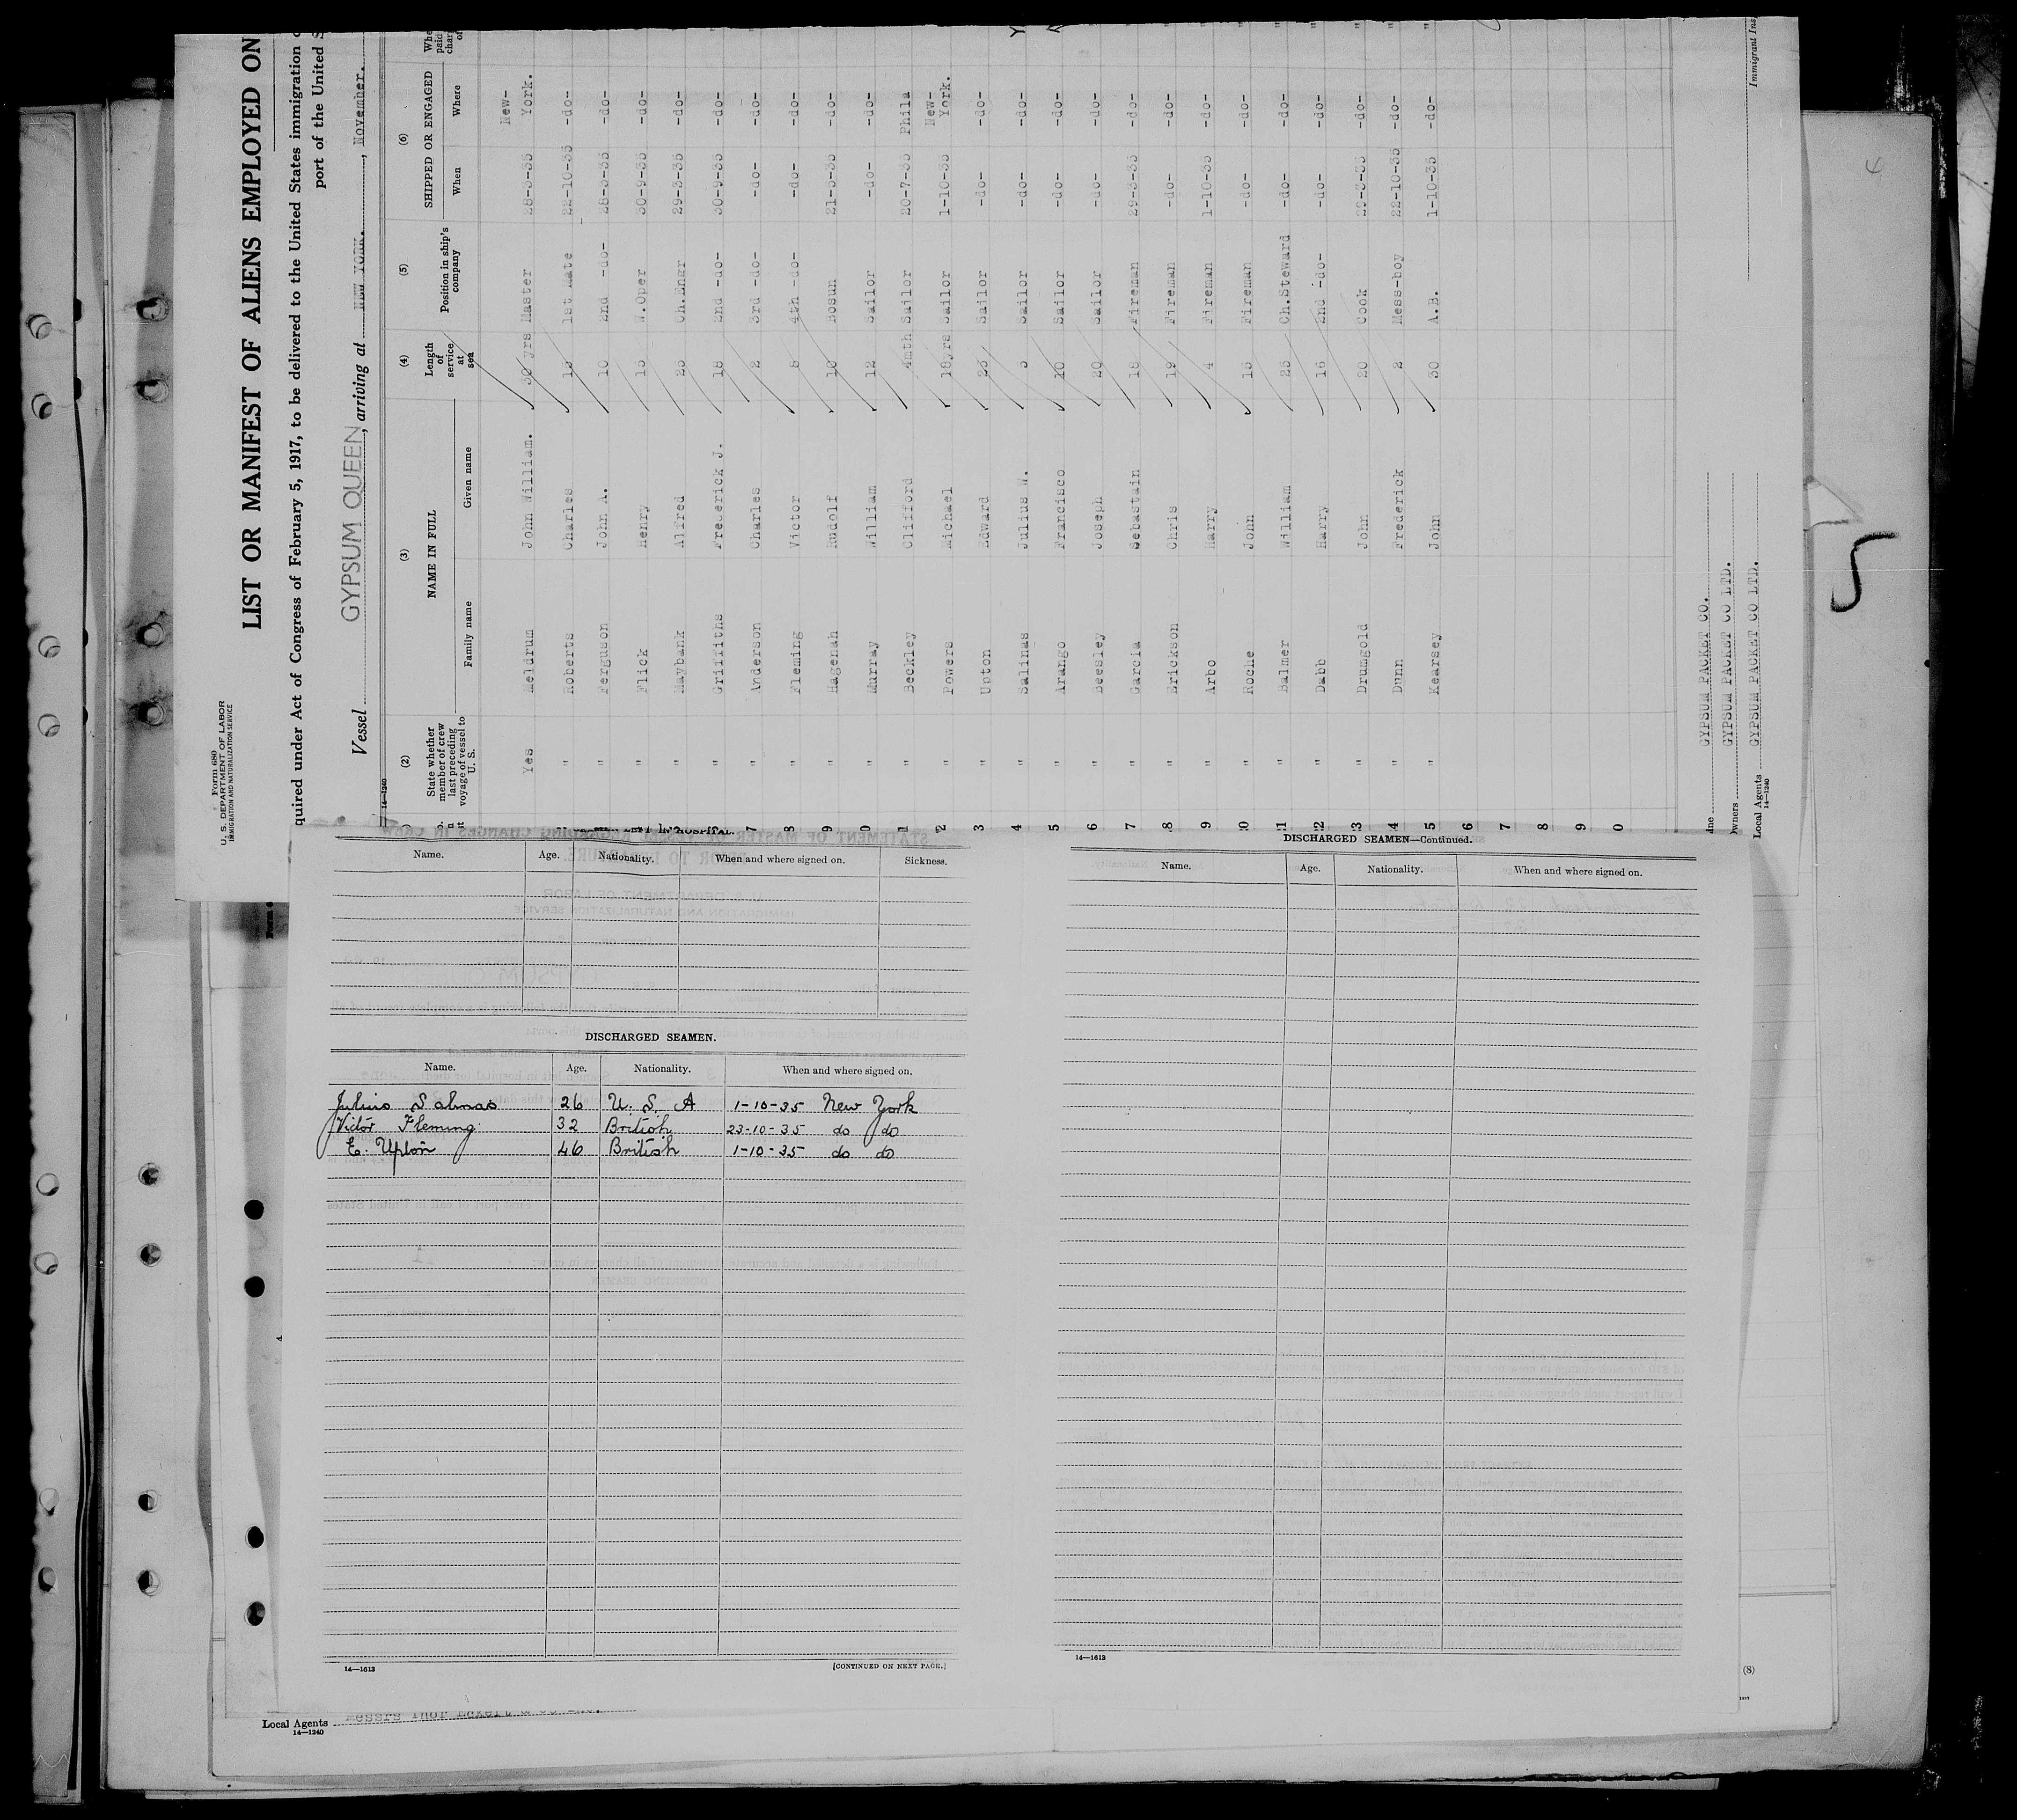 Form 680
U. S. DEPARTMENT OF LABOR
IMMIGRATION AND NATURALIZATION SERVICE
LIST OR MANIFEST OF ALIENS EMPLOYED ON
quired under Act of Congress of February 5, 1917, to be delivered to the United States immigration
port of the United S
Vessel GYPSUM QUEEN, arriving at NEW YORK., November.
14—1240
(2) (3) (4) (5) (6)
State whether member of crew last preceding voyage of vessel to U. S. NAME IN FULL Length of service at sea Position in ship's company SHIPPED OR ENGAGED
Family name Given name When Where
Yes Meldrum John William. 30 yrs Master 28-3-35 New-York.
" Roberts Charles 1st Mate 22-10-35 -do-
" Ferguson John A. 10 2nd -do- 28-3-35 -do-
" Flick Henry W.Oper 30-9-35 -do-
" Maybank Alfred Ch.Engr 29-3-35 -do-
" Griffiths Frederick J. 18 2nd -do- 30-9-35 -do-
7 " Anderson Charles 2 3rd -do- -do- -do-
8 " Fleming Victor 4th -do- -do- -do-
9 " Hagenah Rudolf Bosun -do-
0 " Murray William 12 Sailor -do- -do-
1 " Beckley Clifford 4mth Sailor 20-7-35 Phila
2 " Powers Michael 18yrs Sailor 1-10-35 New-York.
3 " Upton Edward Sailor -do- -do-
4 " Salinas Julius W. Sailor -do- -do-
5 " Arango Francisco Sailor -do- -do-
6 " Beesley Joseph 20 Sailor -do- -do-
7 " Garcia Sebastain 18 Fireman 29-3-35 -do-
8 " Erickson Chris 19 Fireman -do- -do-
9 " Arbo Harry 4 Fireman 1-10-35 -do-
0 " Roche John Fireman -do- -do-
1 " Balmer William Ch.Steward -do- -do-
2 " Dabb Harry 16 2nd -do- -do- -do-
3 " Drumgold John 20 Cook 29-3-35 -do-
4 " Dunn Frederick 2 Mess-boy 22-10-35 -do-
5 " Kearsey John 30 A.B. 1-10-35 -do-
6
7
8
9
0
GYPSUM PACKET CO.
wners GYPSUM PACKET CO LTD.
Local Agents GYPSUM PACKET CO LTD.
14—1240
Immigrant Ins
5
4
Name. Age. Nationality. When and where signed on. Sickness.
DISCHARGED SEAMEN.
Name. Age. Nationality. When and where signed on.
Julius Salinas 26 U. S. A 1-10-35 New York
Victor Fleming 32 British 23-10-35 do do
E. Upton 46 British 1-10-35 do do
14—1613 [CONTINUED ON NEXT PAGE.]
DISCHARGED SEAMEN—Continued.
Name. Age. Nationality. When and where signed on.
14—1613
(S)
Local Agents
14—1240